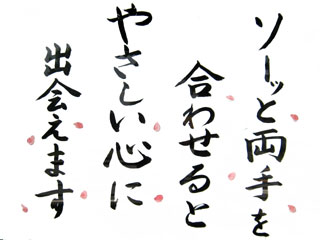 ソーッと両手を
合わせると
やさしい心に
出会えます